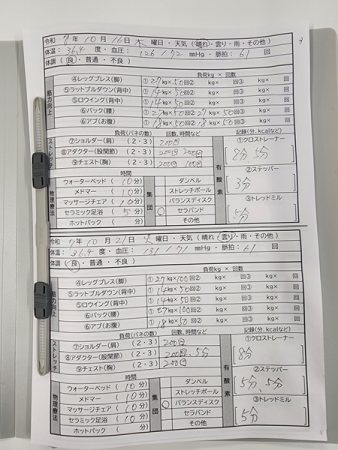 令和 7 年 10 月 16 日 木 曜日・天気(晴れ・曇り・雨・その他)
体温: 36.4 度・血圧: 126 / 72 mmHg・脈拍: 61 回
体調(良・普通・不良)
筋力向上
負荷kg × 回数
④レッグプレス(脚) ①27kg×50回② kg× 回③ kg× 回
⑤ラットプルダウン(背中) ①14kg×50回② kg× 回③ kg× 回
⑤ロウイング(背中) ①14kg×50回② kg× 回③ kg× 回
⑥バック(腰) kg× 回③ kg× 回
⑥アブ(お腹) kg× 回③ kg× 回
ストレッチ
負荷(バネの数) 回数、時間など
⑦ショルダー(肩) (2・3) 200回
⑧アダクター(股関節) (2・3)
⑨チェスト(胸) (2・3)
有酸素
記録(分、kcalなど)
①クロストレーナー
8分
②ステッパー
3分
③トレッドミル
5分
物理療法
時間
ウォーターベッド (10分)
メドマー (10分)
マッサージチェア (10分)
セラミック足浴 (5分)
ホットパック ( 分)
集団
ダンベル
ストレッチポール
バランスディスク
セラバンド
その他
令和 7 年 10 月 21 日 火 曜日・天気(晴れ・曇り・雨・その他)
体温: 36.4 度・血圧: 131 / 71 mmHg・脈拍: 61 回
体調(良・普通・不良)
筋力向上
負荷kg × 回数
④レッグプレス(脚) ①27kg×100回② kg× 回③ kg× 回
⑤ラットプルダウン(背中) ①14kg×50回② kg× 回③ kg× 回
⑤ロウイング(背中) ①14kg×50回② kg× 回③ kg× 回
⑥バック(腰) kg× 回③ kg× 回
⑥アブ(お腹) ①18kg×50回② kg× 回③ kg× 回
ストレッチ
負荷(バネの数) 回数、時間など
⑦ショルダー(肩) (2・3) 200回
⑧アダクター(股関節) (2・3) 200回、5分
⑨チェスト(胸) (2・3) 200回
有酸素
記録(分、kcalなど)
①クロストレーナー
8分
②ステッパー
5分、5分
③トレッドミル
5分
物理療法
時間
ウォーターベッド (10分)
メドマー (10分)
マッサージチェア (10分)
セラミック足浴 (10分)
ホットパック ( 分)
集団
ダンベル
ストレッチポール
バランスディスク
セラバンド
その他